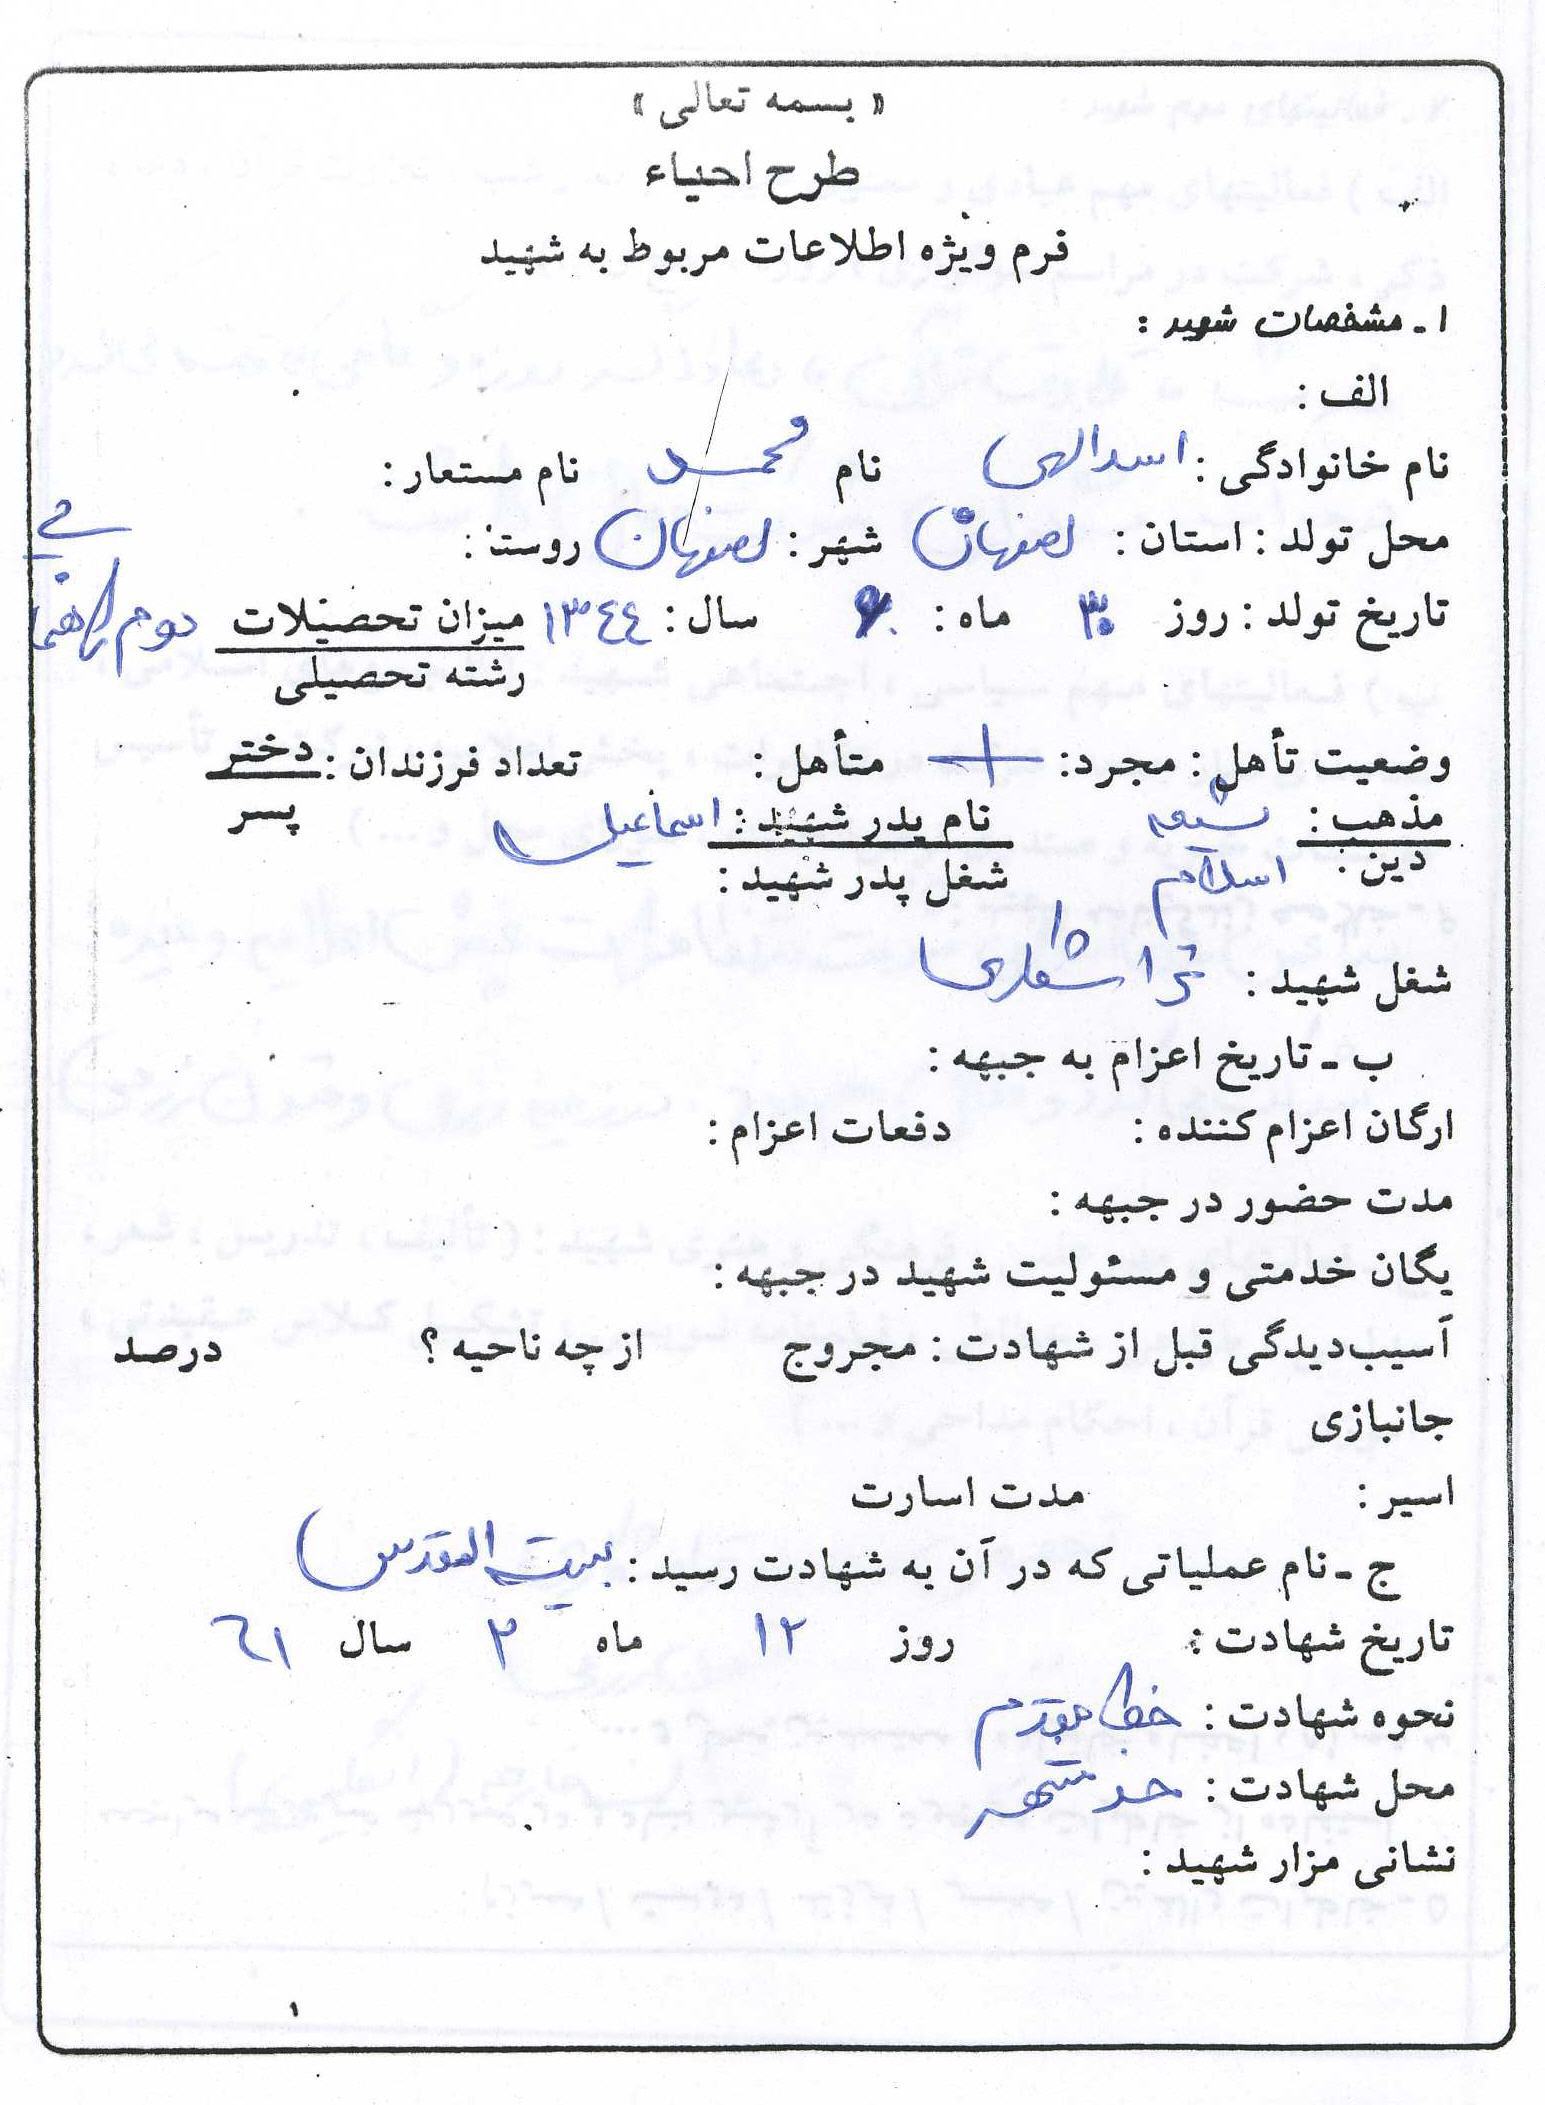 « بسمه تعالی »
طرح احیاء
فرم ویژه اطلاعات مربوط به شهید
۱ - مشخصات شهید :
الف :
نام خانوادگی : اسدالهی نام محمد نام مستعار :
محل تولد : استان : اصفهان شهر : اصفهان روستا :
تاریخ تولد : روز ۳۰ ماه : سال : ۱۳۴۴ میزان تحصیلات دوم راهنمایی
رشته تحصیلی
وضعیت تأهل : مجرد : + متأهل : تعداد فرزندان : دختر
پسر
مذهب : شیعه نام پدر شهید : اسماعیل
دین : اسلام شغل پدر شهید :
شغل شهید : تراشکاری
ب - تاریخ اعزام به جبهه :
ارگان اعزام کننده : دفعات اعزام :
مدت حضور در جبهه :
یگان خدمتی و مسئولیت شهید در جبهه :
آسیب‌دیدگی قبل از شهادت : مجروح از چه ناحیه ؟ درصد
جانبازی
اسیر : مدت اسارت
ج - نام عملیاتی که در آن به شهادت رسید : بیت المقدس
تاریخ شهادت : روز ۱۲ ماه ۳ سال ۶۱
نحوه شهادت : خط مقدم
محل شهادت : خرمشهر
نشانی مزار شهید :
۱